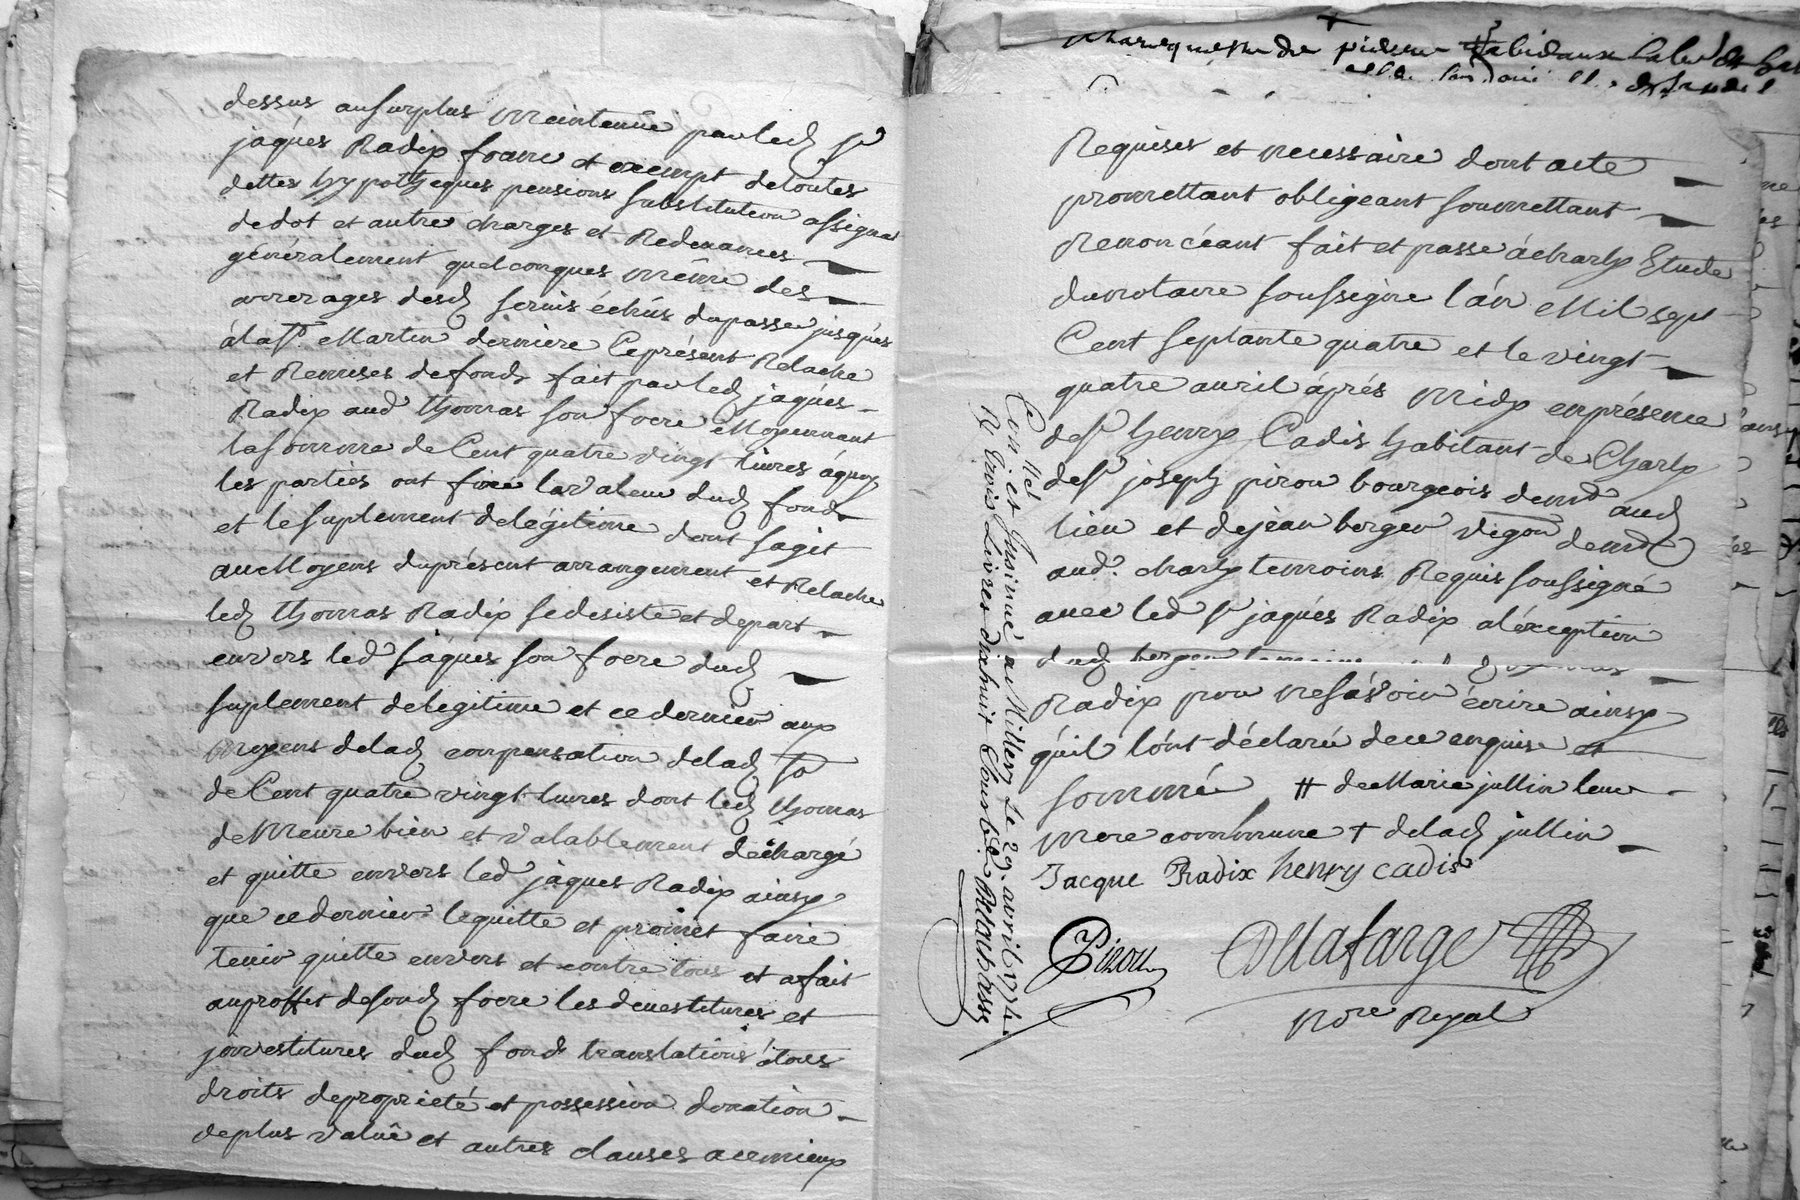 dessus au surplus maintenüe par led. Sr
jaqués Radix franc et exempt detoutes
dettes hypothéques pensions substitution assignaõ
dedot et autre charges et Redevances
généralement quelconques méme des
arrerages desd. servis échûs dupassé jusqués
álast. Martin derniere Ceprésent Relache
et Remises defonds fait par led. jaqués
Radix aud. thomas son frere Moyennant
lasomme de Cent quatre vingt livres áquoy
les parties ont fixé lavaleur dud. fonds
et lesuplement delégitime dont sagit
aux Moyens duprésent arrangement et Relache
led. thomas Radix sedesiste et depart
envers led. jáques son frere dud.
suplement delegitime et cedernier aux
moyens delad. compensation delad. so.
de Cent quatre vingt livres dont led. thomas
demeure bien et valablement déchargé
et quitte envers led. jáques Radix ainsy
que cedernier lequitte et promet faire
tenir quitte envers et contre tous et afait
auproffit desond. frere les devestitures et
jnvestitures dud. fonds translations átous
droits depropriété et possession donation
deplus valüe et autres clauses aumieux
Requises et necessaire dont acte
promettant obligeant soumettant
Renoncéant fait et passé ácharly Etude
dunotaire soussigné l'án Mil sept
Cent septante quatre et le vingt
quatre avril áprés midy enprésence
desr. henry Cadis habitant de Charly
desr. joseph pirou bourgeois demt. aud.
lieu et dejean berger vigon demt.
aud. charly temoins Requis soussigné
avec led. sr jaqués Radix aléxception
dud. berger temoins
Radix pour nesávoir écrire ainsy
quíl lónt déclaré dece enquise et
sommé # de Marie jullin leur
mere commune + delad. jullin
Jacque Radix henry cadis
Pirou Delafarge
Nore Royal
Con.llé et Insinué a Millery Le 29. avril 1774.
R/ trois Livres dixhuit Sous